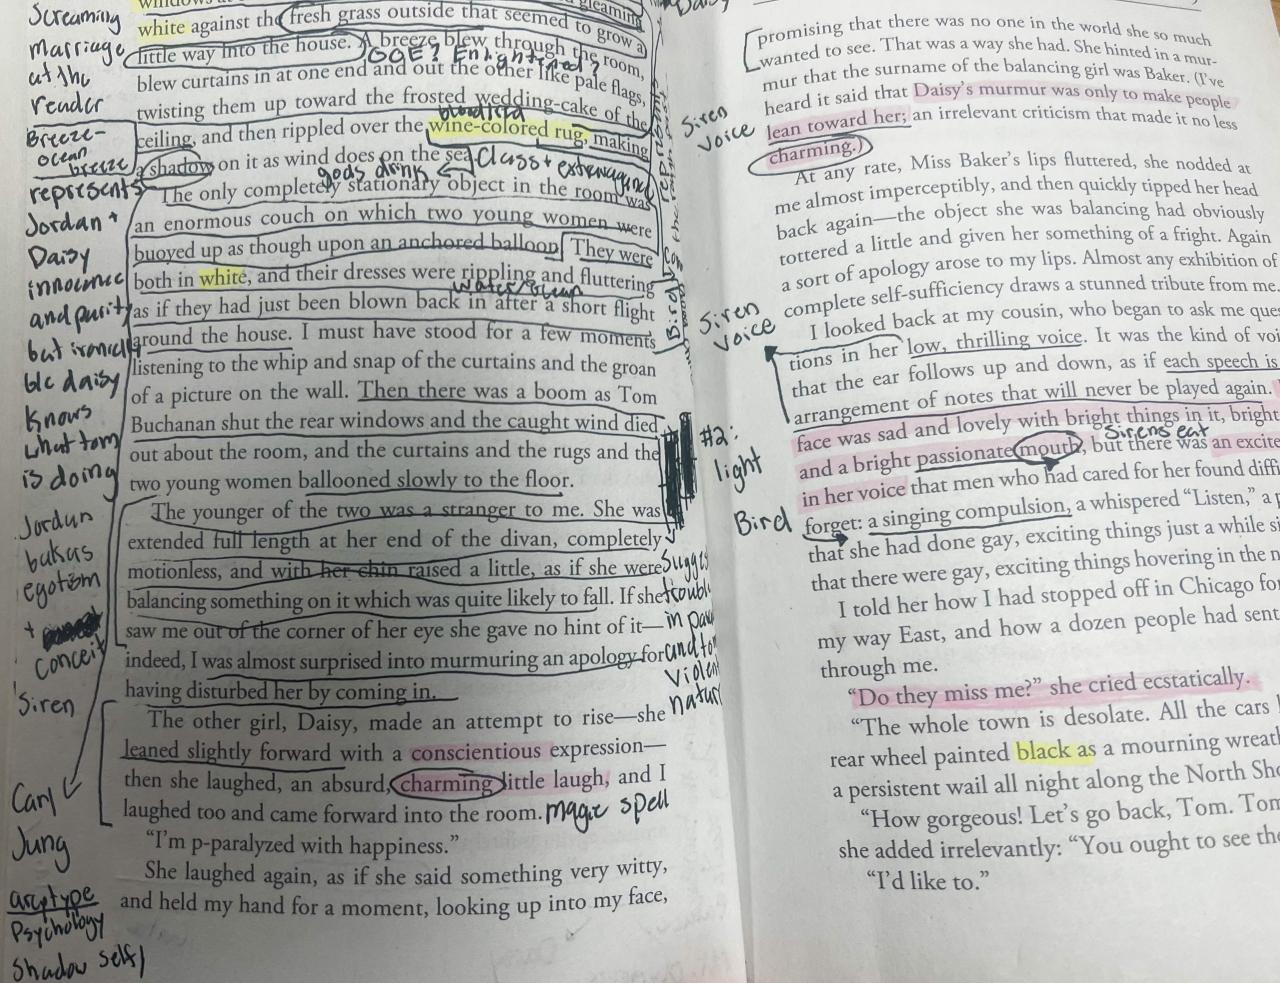 white against the fresh grass outside that seemed to grow a
little way into the house. A breeze blew through the room,
OGE? Enlightened?
blew curtains in at one end and out the other like pale flags,
twisting them up toward the frosted wedding-cake of the
ceiling, and then rippled over the wine-colored rug, making
a shadow on it as wind does on the sea.
gods drink
Class + extravagance
The only completely stationary object in the room was
an enormous couch on which two young women were
buoyed up as though upon an anchored balloon. They were
both in white, and their dresses were rippling and fluttering
water/ocean
as if they had just been blown back in after a short flight
around the house. I must have stood for a few moments
listening to the whip and snap of the curtains and the groan
of a picture on the wall. Then there was a boom as Tom
Buchanan shut the rear windows and the caught wind died
out about the room, and the curtains and the rugs and the
two young women ballooned slowly to the floor.
The younger of the two was a stranger to me. She was
extended full length at her end of the divan, completely
motionless, and with her chin raised a little, as if she were
balancing something on it which was quite likely to fall. If she
saw me out of the corner of her eye she gave no hint of it—
indeed, I was almost surprised into murmuring an apology for
having disturbed her by coming in.
The other girl, Daisy, made an attempt to rise—she
leaned slightly forward with a conscientious expression—
then she laughed, an absurd, charming little laugh, and I
laughed too and came forward into the room.
magic spell
“I'm p-paralyzed with happiness.”
She laughed again, as if she said something very witty,
and held my hand for a moment, looking up into my face,
Screaming
marriage
at the
reader
Breeze-
ocean
breeze
represents
Jordan +
Daisy
innocence
and purity
but ironically
b/c daisy
knows
what tom
is doing
Jordan
bakas
egotism
+
conceit
Siren
Carl
Jung
arcptype
Psychology
Shadow self)
#2:
light
Bird
Sugges
trouble
in
and to
violen
natur
Siren
voice
Siren
voice
promising that there was no one in the world she so much
wanted to see. That was a way she had. She hinted in a mur-
mur that the surname of the balancing girl was Baker. (I've
heard it said that Daisy's murmur was only to make people
lean toward her; an irrelevant criticism that made it no less
charming.)
At any rate, Miss Baker's lips fluttered, she nodded at
me almost imperceptibly, and then quickly tipped her head
back again—the object she was balancing had obviously
tottered a little and given her something of a fright. Again
a sort of apology arose to my lips. Almost any exhibition of
complete self-sufficiency draws a stunned tribute from me.
I looked back at my cousin, who began to ask me ques
tions in her low, thrilling voice. It was the kind of voi
that the ear follows up and down, as if each speech is
arrangement of notes that will never be played again.
face was sad and lovely with bright things in it, bright
Sirens eat
and a bright passionate mouth, but there was an excite
in her voice that men who had cared for her found diffi
forget: a singing compulsion, a whispered “Listen,” a p
that she had done gay, exciting things just a while si
that there were gay, exciting things hovering in the n
I told her how I had stopped off in Chicago for
my way East, and how a dozen people had sent
through me.
“Do they miss me?” she cried ecstatically.
“The whole town is desolate. All the cars
rear wheel painted black as a mourning wreath
a persistent wail all night along the North Sho
“How gorgeous! Let's go back, Tom. Tom
she added irrelevantly: “You ought to see the
“I'd like to.”